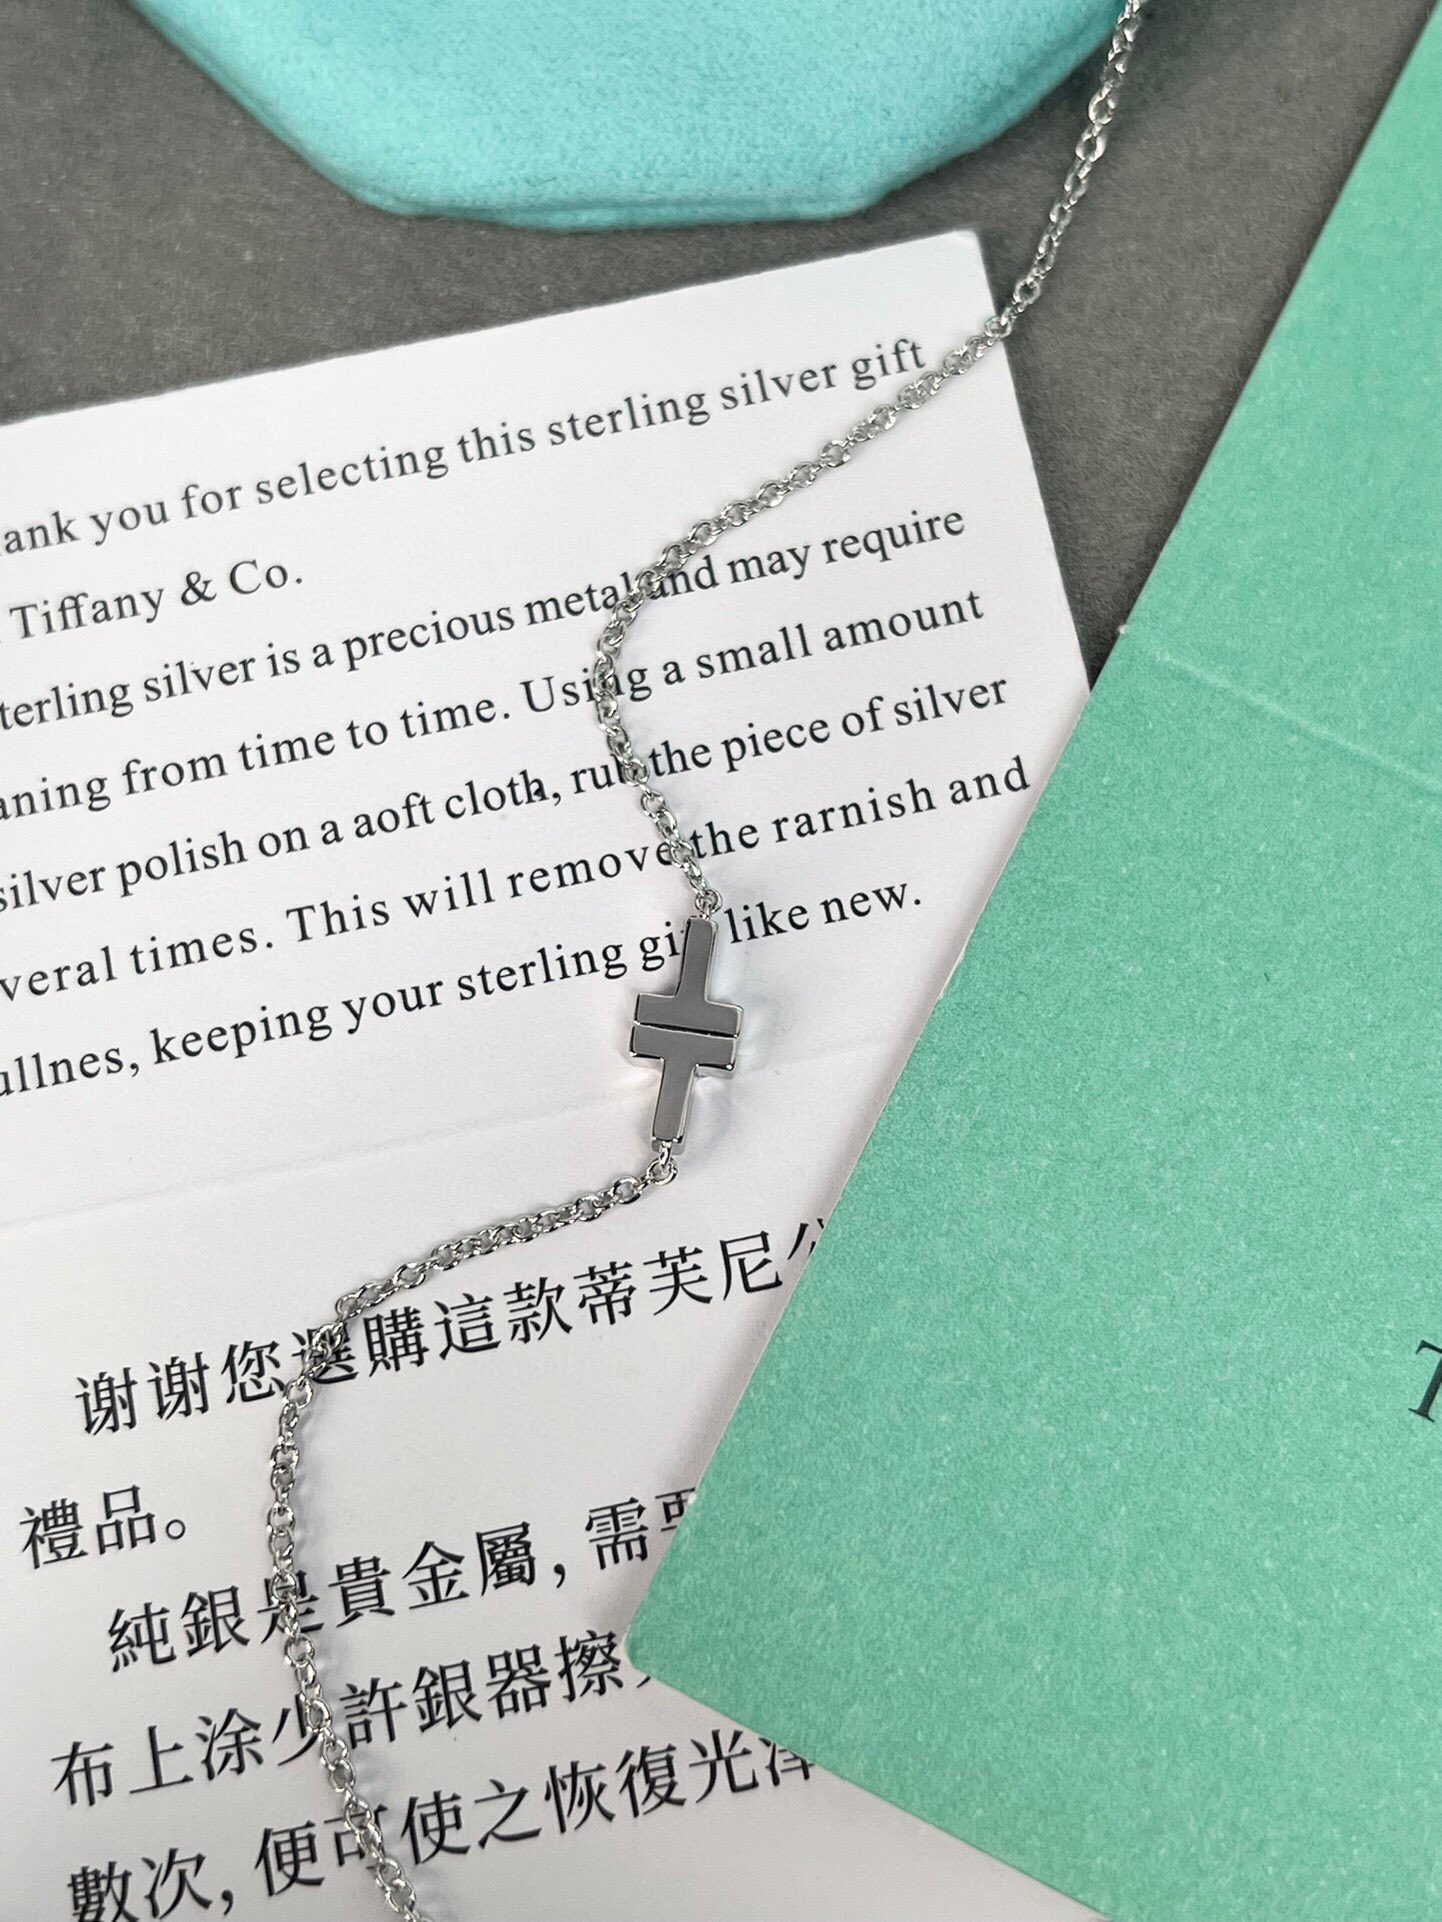 ank you for selecting this sterling silver gift
Tiffany & Co.
terling silver is a precious metal and may require
aning from time to time. Using a small amount
silver polish on a aoft cloth, rub the piece of silver
veral times. This will remove the rarnish and
ullnes, keeping your sterling gift like new.
谢谢您選購這款蒂芙尼公
禮品。
純銀是貴金屬, 需要
布上涂少許銀器擦
數次, 便可使之恢復光澤
T